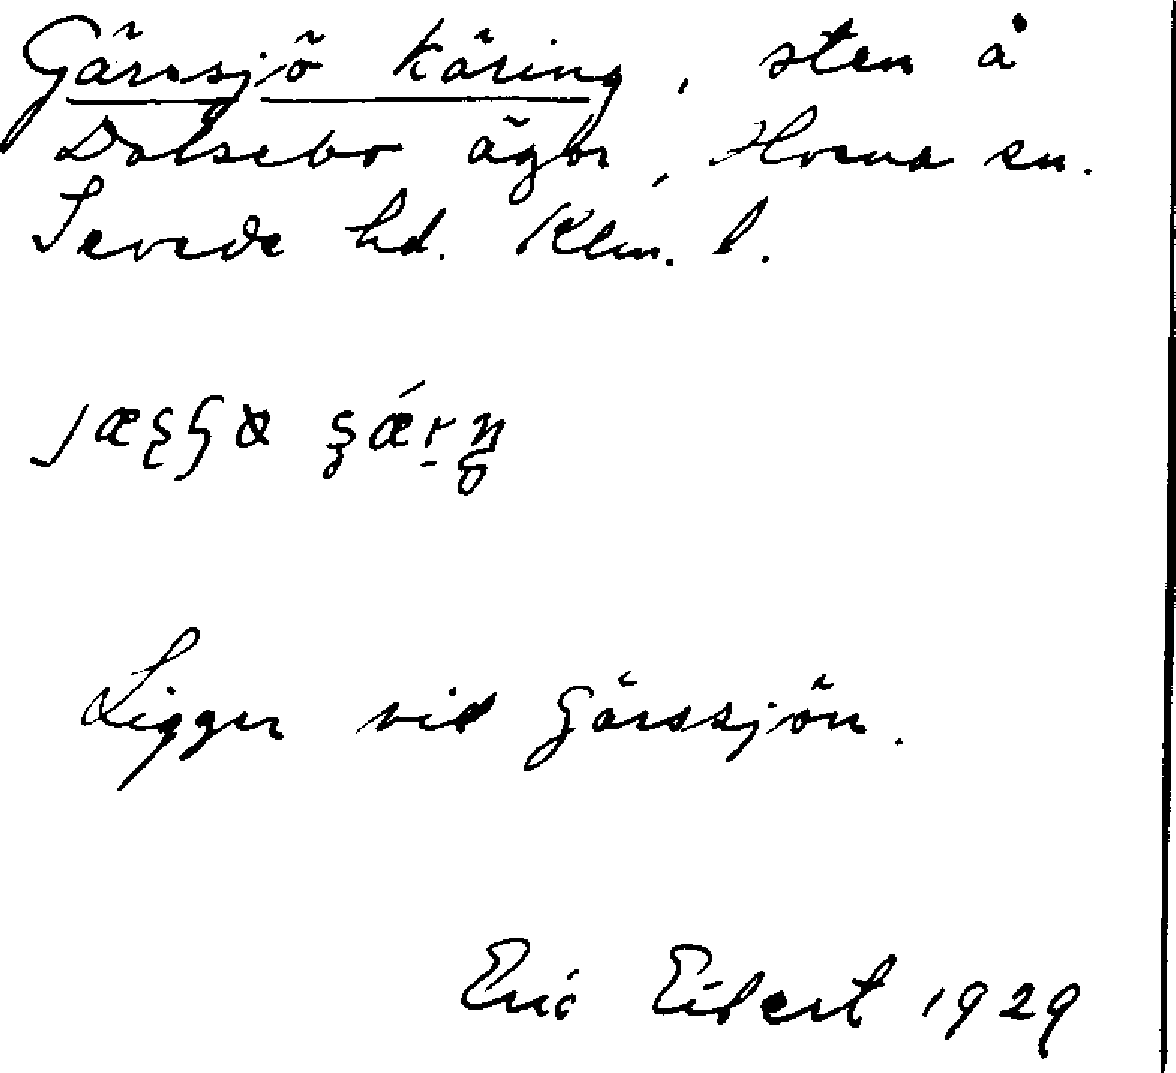 Gärssjö käring, sten å
Dalsebo ägor, Horna sn.
Sevede hd. Klm. l.
Ligger vid Gärssjön.
Eric Eibert 1929